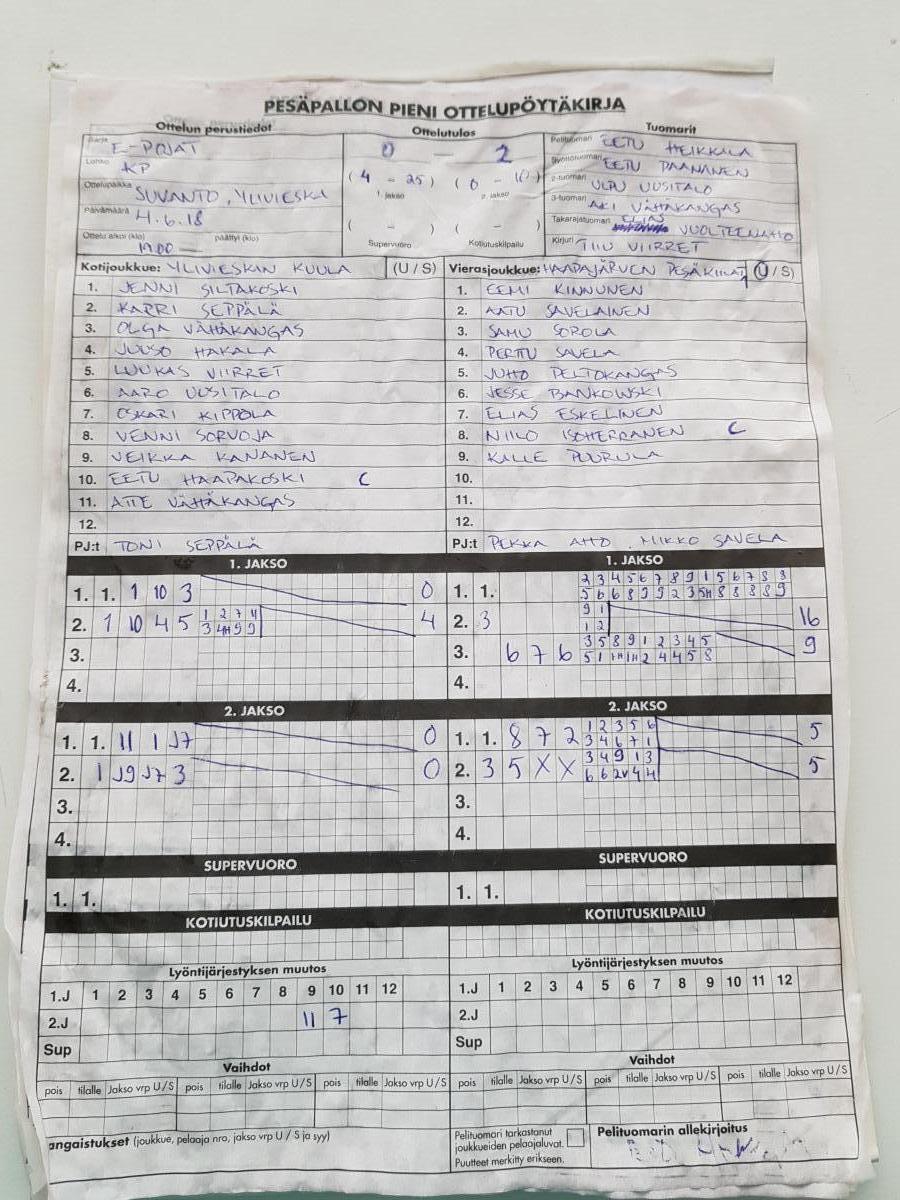 PESÄPALLON PIENI OTTELUPÖYTÄKIRJA
Ottelun perustiedot Ottelutulos Tuomarit
Sarja E-POJAT
Lohko KP
Ottelupaikka SUVANTO, YLIVIESKA
Päivämäärä 4.6.18
Ottelu alkoi (klo) 19.00 — päättyi (klo)
0 — 2
(4 - 25) (0 - 10)
1. jakso 2. jakso
( - ) ( - )
Supervuoro Kotiutuskilpailu
Pelituomari EETU HEIKKALA
Syöttötuomari EETU PAANANEN
2-tuomari ULPU UUSITALO
3-tuomari AKI VÄHÄKANGAS
Takarajatuomari ELIAS VUOLTEENAHO
Kirjuri TIIU VIIRRET
Kotijoukkue: YLIVIESKAN KUULA (U / S)
1. JENNI SILTAKOSKI
2. KARRI SEPPÄLÄ
3. OLGA VÄHÄKANGAS
4. JUUSO HAKALA
5. LUUKAS VIIRRET
6. AARO UUSITALO
7. OSKARI KIPPOLA
8. VENNI SORVOJA
9. VEIKKA KANANEN
10. EETU HAAPAKOSKI C
11. ATTE VÄHÄKANGAS
12.
PJ:t TONI SEPPÄLÄ
Vierasjoukkue: HAAPAJÄRVEN PESÄKIILAT (U / S)
1. EEMI KINNUNEN
2. AATU SAVELAINEN
3. SAMU SOROLA
4. PERTTU SAVELA
5. JUHO PELTOKANGAS
6. JESSE BANKOWSKI
7. ELIAS ESKELINEN
8. NIILO ISOHERRANEN C
9. KALLE PUURULA
10.
11.
12.
PJ:t PEKKA AHO, MIKKO SAVELA
1. JAKSO
1. 1. 1 10 3 0
2. 1 10 4 5 1 2 7 11 4
3 4H 9 9
3.
4.
1. JAKSO
1. 1. 2 3 4 5 6 7 8 9 1 5 6 7 8 8
5 6 6 8 9 9 2 3 5H 8 8 8 8 9
2. 3 9 1 16
1 2
3. 6 7 6 3 5 8 9 1 2 3 4 5 9
5 1 1H 1H 2 4 4 5 8
4.
2. JAKSO
1. 1. 11 1 J7 0
2. 1 J9 J7 3 0
3.
4.
2. JAKSO
1. 1. 8 7 2 1 2 3 5 6 5
3 4 6 7 1
2. 3 5 X X 3 4 9 1 3 5
6 6 2V 4 4
3.
4.
SUPERVUORO
1. 1.
SUPERVUORO
1. 1.
KOTIUTUSKILPAILU
KOTIUTUSKILPAILU
Lyöntijärjestyksen muutos
1.J 1 2 3 4 5 6 7 8 9 10 11 12
2.J 11 7
Sup
Lyöntijärjestyksen muutos
1.J 1 2 3 4 5 6 7 8 9 10 11 12
2.J
Sup
Vaihdot
pois tilalle Jakso vrp U / S pois tilalle Jakso vrp U / S pois tilalle Jakso vrp U / S
Vaihdot
pois tilalle Jakso vrp U / S pois tilalle Jakso vrp U / S pois tilalle Jakso vrp U / S
angaistukset (joukkue, pelaaja nro, jakso vrp U / S ja syy)
Pelituomari tarkastanut
joukkueiden pelaajaluvat.
Puutteet merkitty erikseen.
Pelituomarin allekirjoitus